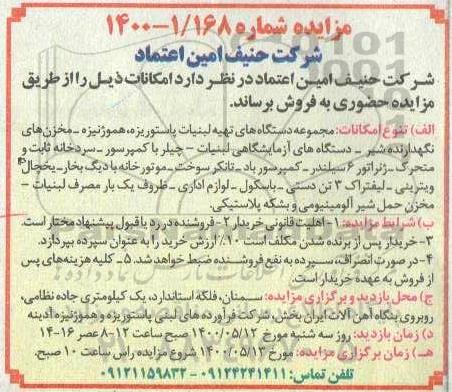 مزایده شماره ۱/۱۶۸-۱۴۰۰
شرکت حنیف امین اعتماد
شرکت حنیف امین اعتماد در نظر دارد امکانات ذیل را از طریق
مزایده حضوری به فروش برساند.
الف) تنوع امکانات: مجموعه دستگاه های تهیه لبنیات پاستوریزه، هموژنیزه - مخزن های
نگهدارنده شیر - دستگاه های آزمایشگاهی لبنیات - چیلر با کمپرسور - سردخانه ثابت و
متحرک - ژنراتور ۶ سیلندر - کمپرسور باد - تانکر سوخت - موتورخانه با دیگ بخار - یخچال
ویترینی - لیفتراک ۳ تن دستی - باسکول - لوازم اداری - ظروف یک بار مصرف لبنیات -
مخزن حمل شیر آلومینیومی و بشکه پلاستیکی.
ب) شرایط مزایده: ۱- اهلیت قانونی خریدار ۲- فروشنده در رد یا قبول پیشنهاد مختار است.
۳- خریدار پس از برنده شدن مکلف است ۱۰٪ ارزش خرید را به عنوان سپرده بپردازد.
۴- در صورت انصراف، سپرده به نفع فروشنده ضبط خواهد شد. ۵- کلیه هزینه های پس
از فروش به عهده خریدار است.
ج) محل بازدید و برگزاری مزایده: سمنان، فلکه استاندارد، یک کیلومتری جاده نظامی،
روبروی بنگاه آهن آلات ایران بخش، شرکت فرآورده های لبنی پاستوریزه و هموژنیزه آدینه
د) زمان بازدید: روز سه شنبه مورخ ۱۴۰۰/۰۵/۱۲ صبح ساعت ۱۲-۸ عصر ۱۶-۱۴
هـ) زمان برگزاری مزایده: مورخ ۱۴۰۰/۰۵/۱۳ شروع مزایده راس ساعت ۱۰ صبح.
تلفن تماس: ۰۹۱۲۴۲۴۱۴۱۱ - ۰۹۱۲۱۱۵۹۸۳۲